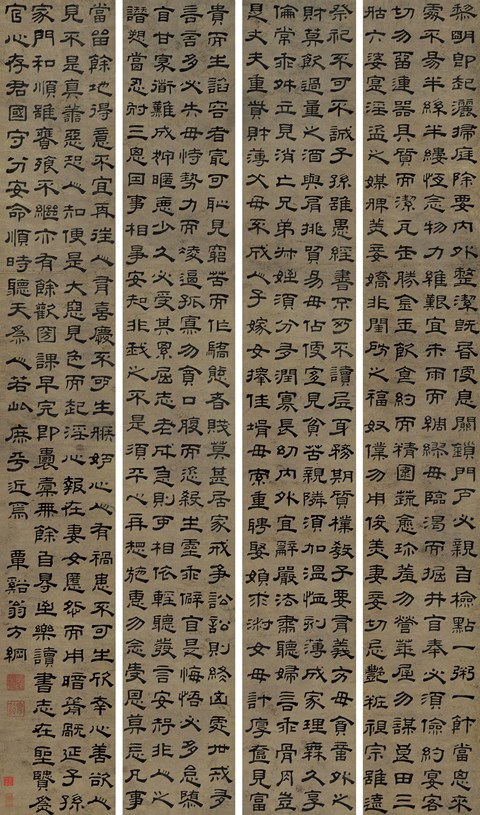 黎明即起灑掃庭除要內外整潔既昏便息關鎖門戶必親自檢點一粥一飯當思來
處不易半絲半縷恆念物力維艱宜未雨而綢繆毋臨渴而掘井自奉必須儉約宴客
切勿留連器具質而潔瓦缶勝金玉飲食約而精園蔬愈珍羞勿營華屋勿謀良田三
姑六婆寔淫盜之媒婢美妾嬌非閨房之福奴僕勿用俊美妻妾切忌艷粧祖宗雖遠
祭祀不可不誠子孫雖愚經書不可不讀居身務期質樸教子要有義方毋貪意外之
財莫飲過量之酒與肩挑貿易毋佔便宜見貧苦親鄰須加溫恤刻薄成家理無久享
倫常乖舛立見消亡兄弟叔姪須分多潤寡長幼內外宜辭嚴法肅聽婦言乖骨肉豈
是丈夫重貲財薄父母不成人子嫁女擇佳壻毋索重聘娶媳求淑女毋計厚奩見富
貴而生諂容者最可恥見窮苦而作驕態者賤莫甚居家戒爭訟訟則終凶處世戒多
言言多必失毋恃勢力而凌逼孤寡勿貪口腹而恣殺生靈乖僻自是悔悟必多怠惰
自甘家道難成狎暱惡少久必受其累屈志老成急則可相依輕聽發言安得非人之
譖愬當忍耐三思因事相爭安知非我之不是須平心再想施惠勿念受恩莫忘凡事
當留餘地得意不宜再往人有喜慶不可生嫉妒心人有禍患不可生欣幸心善欲人
見不是真善惡恐人知便是大惡見色而起淫心報在妻女匿怨而用暗箭禍延子孫
家門和順雖饔飱不繼亦有餘歡國課早完即囊橐無餘自得至樂讀書志在聖賢為
官心存君國守分安命順時聽天為人若此庶乎近焉 覃谿翁方綱